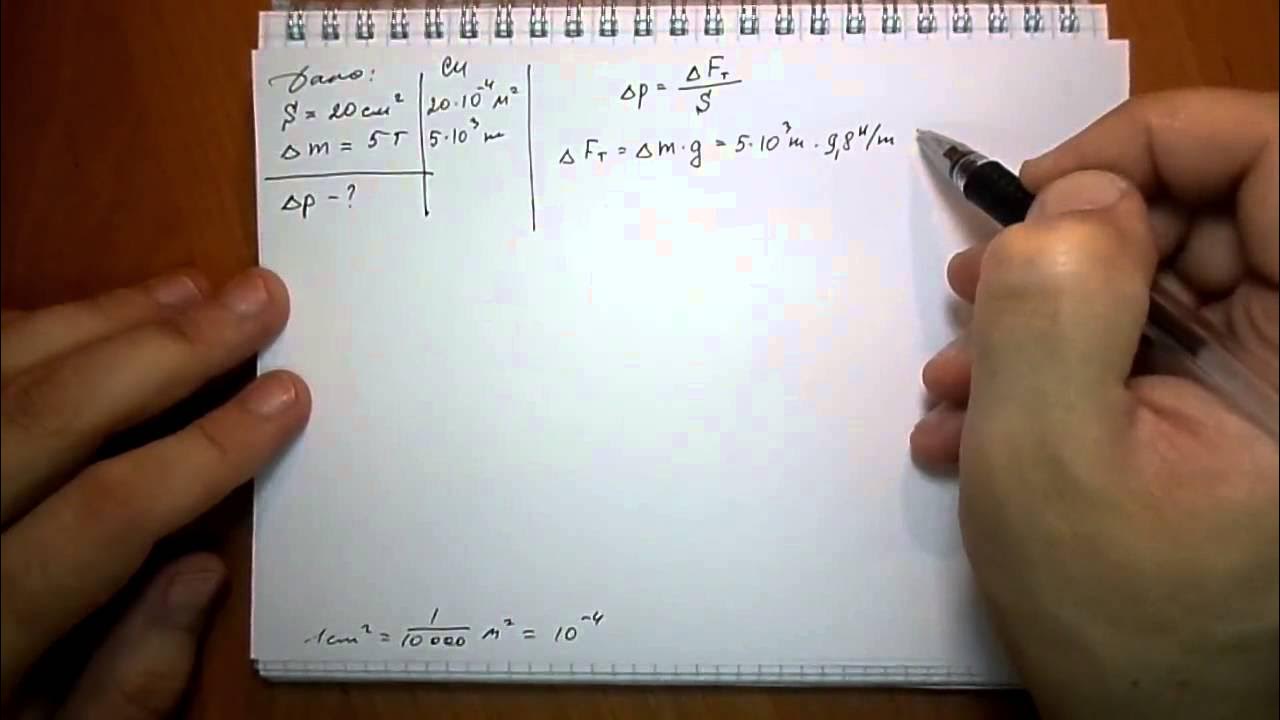 Дано:
S = 20 см²
Δm = 5 т
Δp - ?
СИ
20·10⁻⁴ м²
5·10³ m
Δp = ΔFт / S
ΔFт = Δm·g = 5·10³ m · 9,8 н/m
1 cm² = 1/10 000 м² = 10⁻⁴